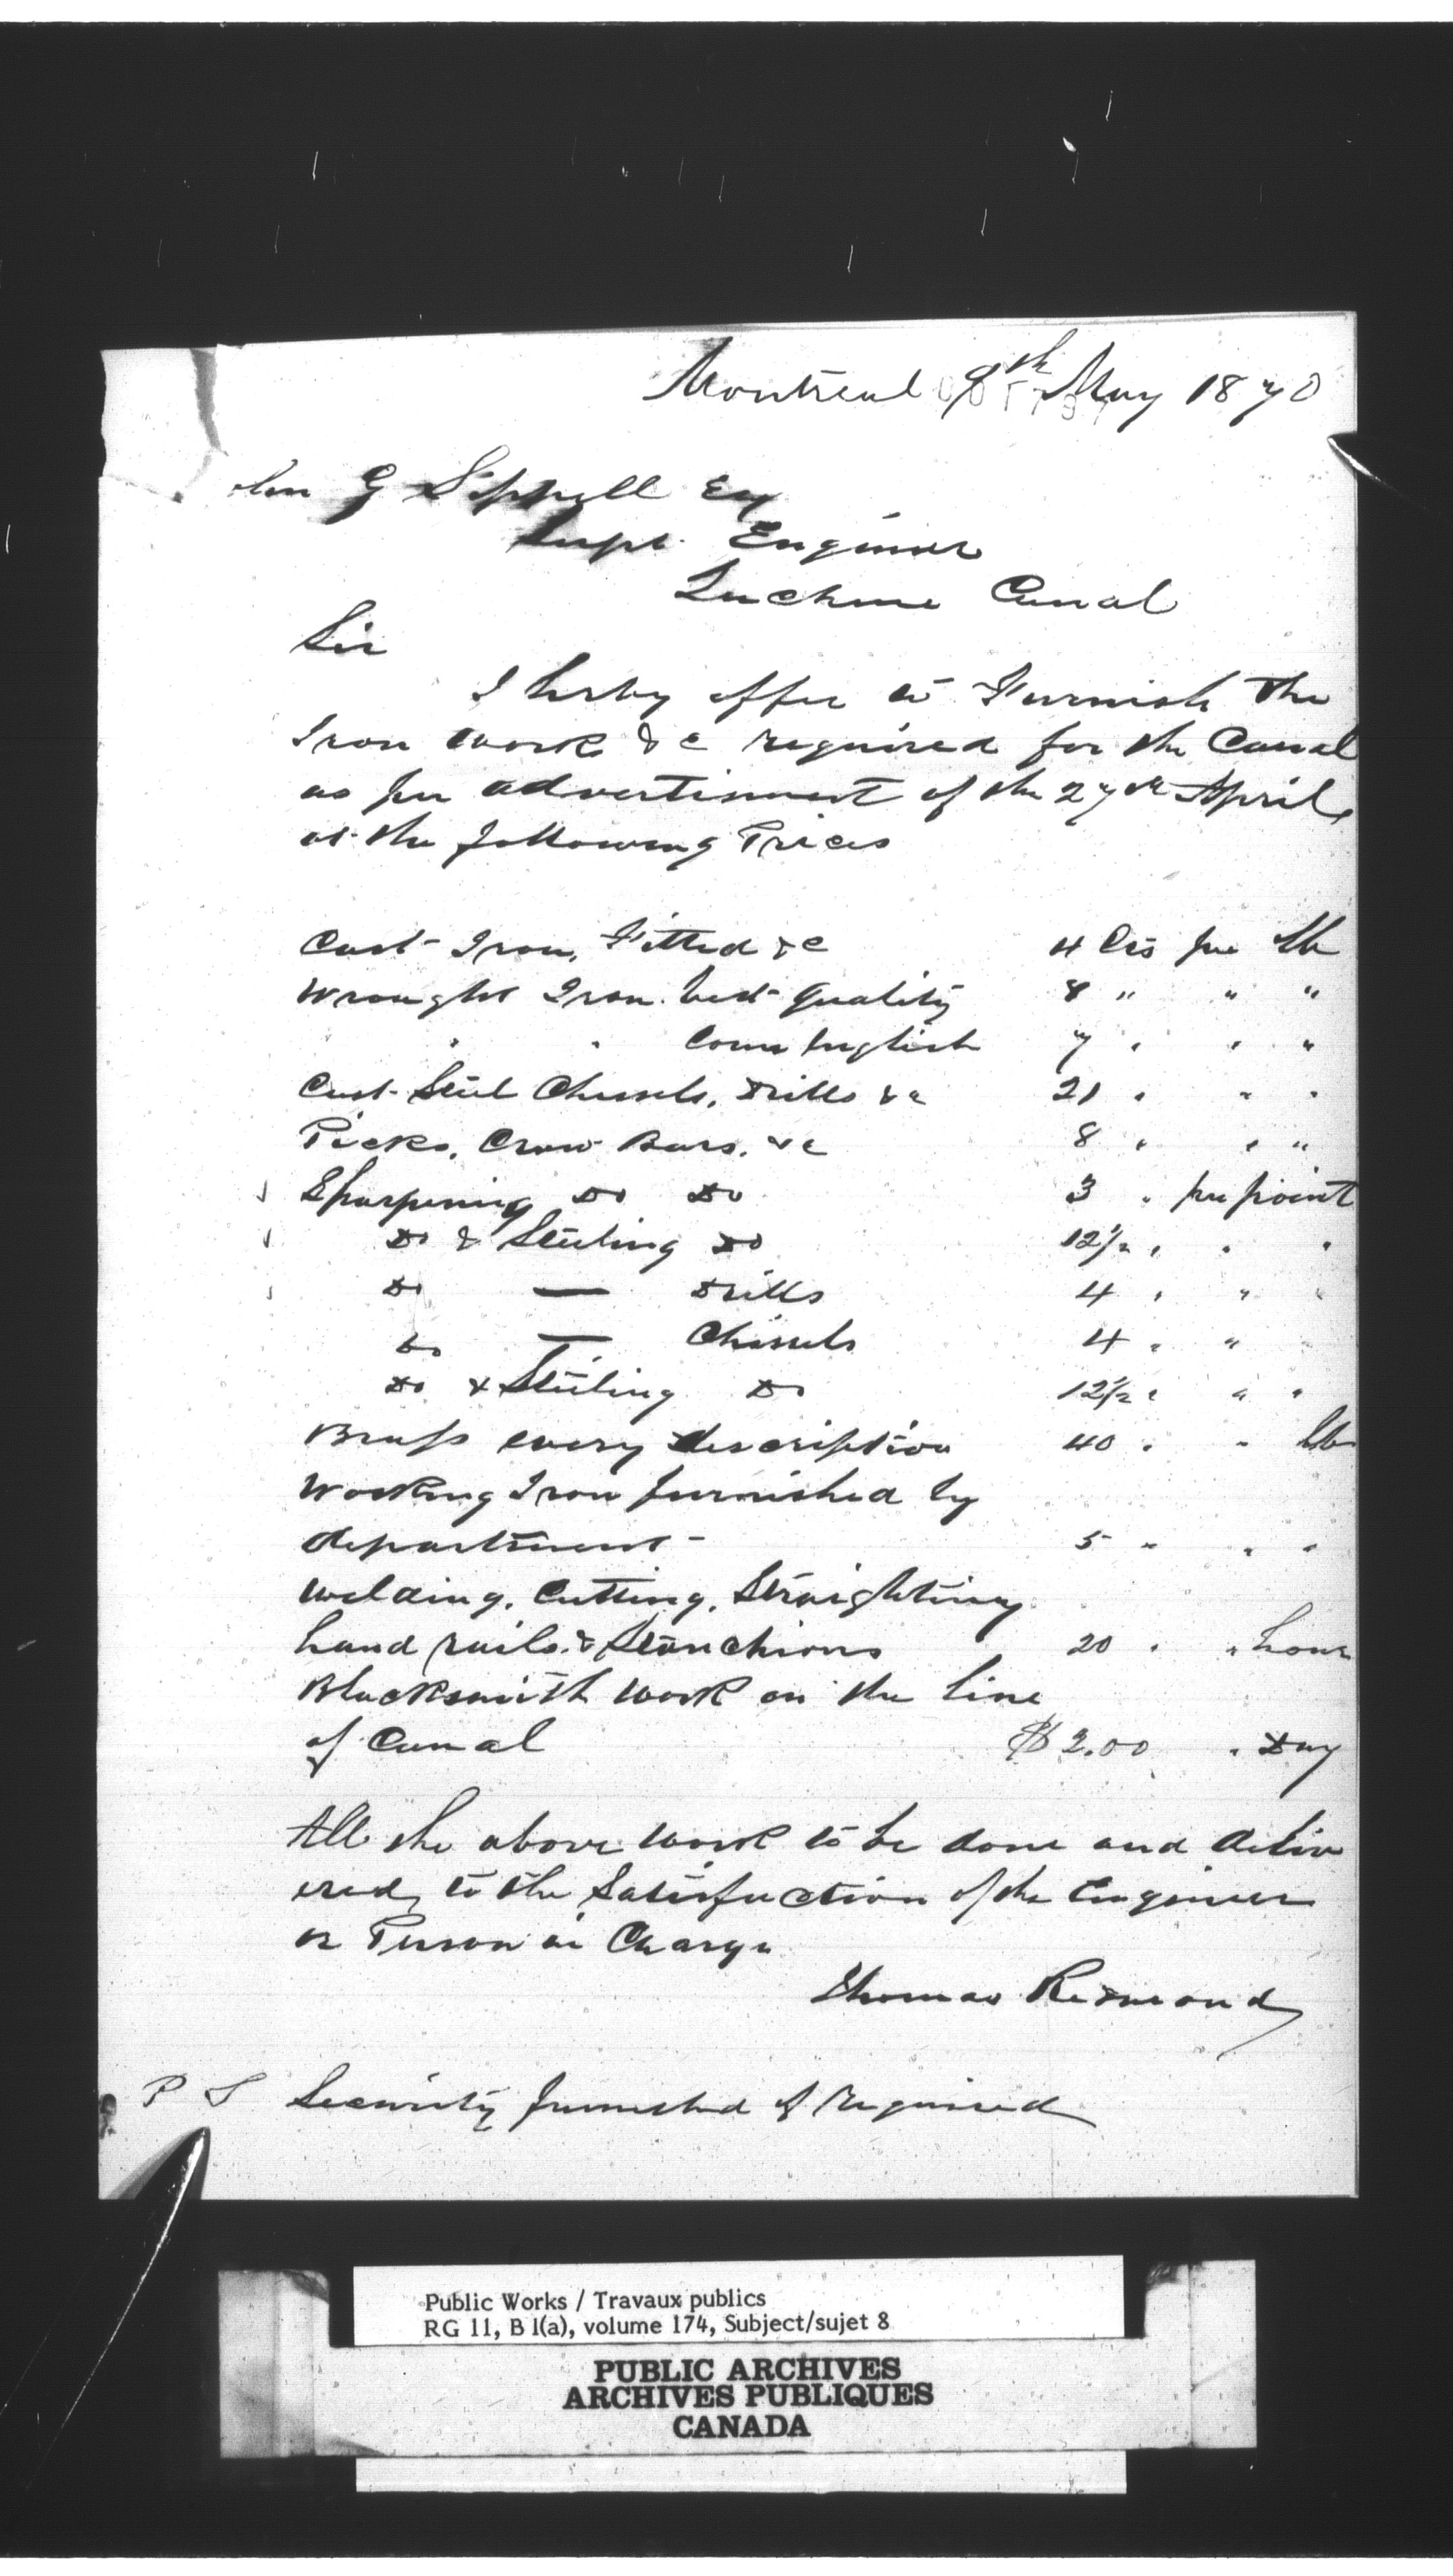 Montreal 9th May 1870
John G Sippell Esq
Supt. Engineer
Lachine Canal
Sir
I herby offer to Furnish the
Iron work &c required for the Canal
as per advertisment of the 27th April
at the following Prices
Cast Iron, Fitted &c 4 Cts per lb
Wrought Iron best quality 8 " " "
" " Comn English 7 " " "
Cast Steel Chissels, Drills &c 21 " " "
Picks, Crow Bars, &c 8 " " "
Sharpening Do Do 3 " per point
Do & Steeling Do 12½ " " "
Do — Drills 4 " " "
Do — Chissels 4 " "
Do & Steeling Do 12½ " " "
Brass every description 40 " " lb
Working Iron furnished by
department 5 " " "
Welding, Cutting, Straighting
hand rails & Stanchions 20 " " hour
Blacksmith work on the line
of Canal $2.00 " Day
All the above work to be done and deliv
ered to the Satisfaction of the Engineer
or Person in Charge
Thomas Redmond
P S Security furnished if required
Public Works / Travaux publics
RG 11, B 1(a), volume 174, Subject/sujet 8
PUBLIC ARCHIVES
ARCHIVES PUBLIQUES
CANADA